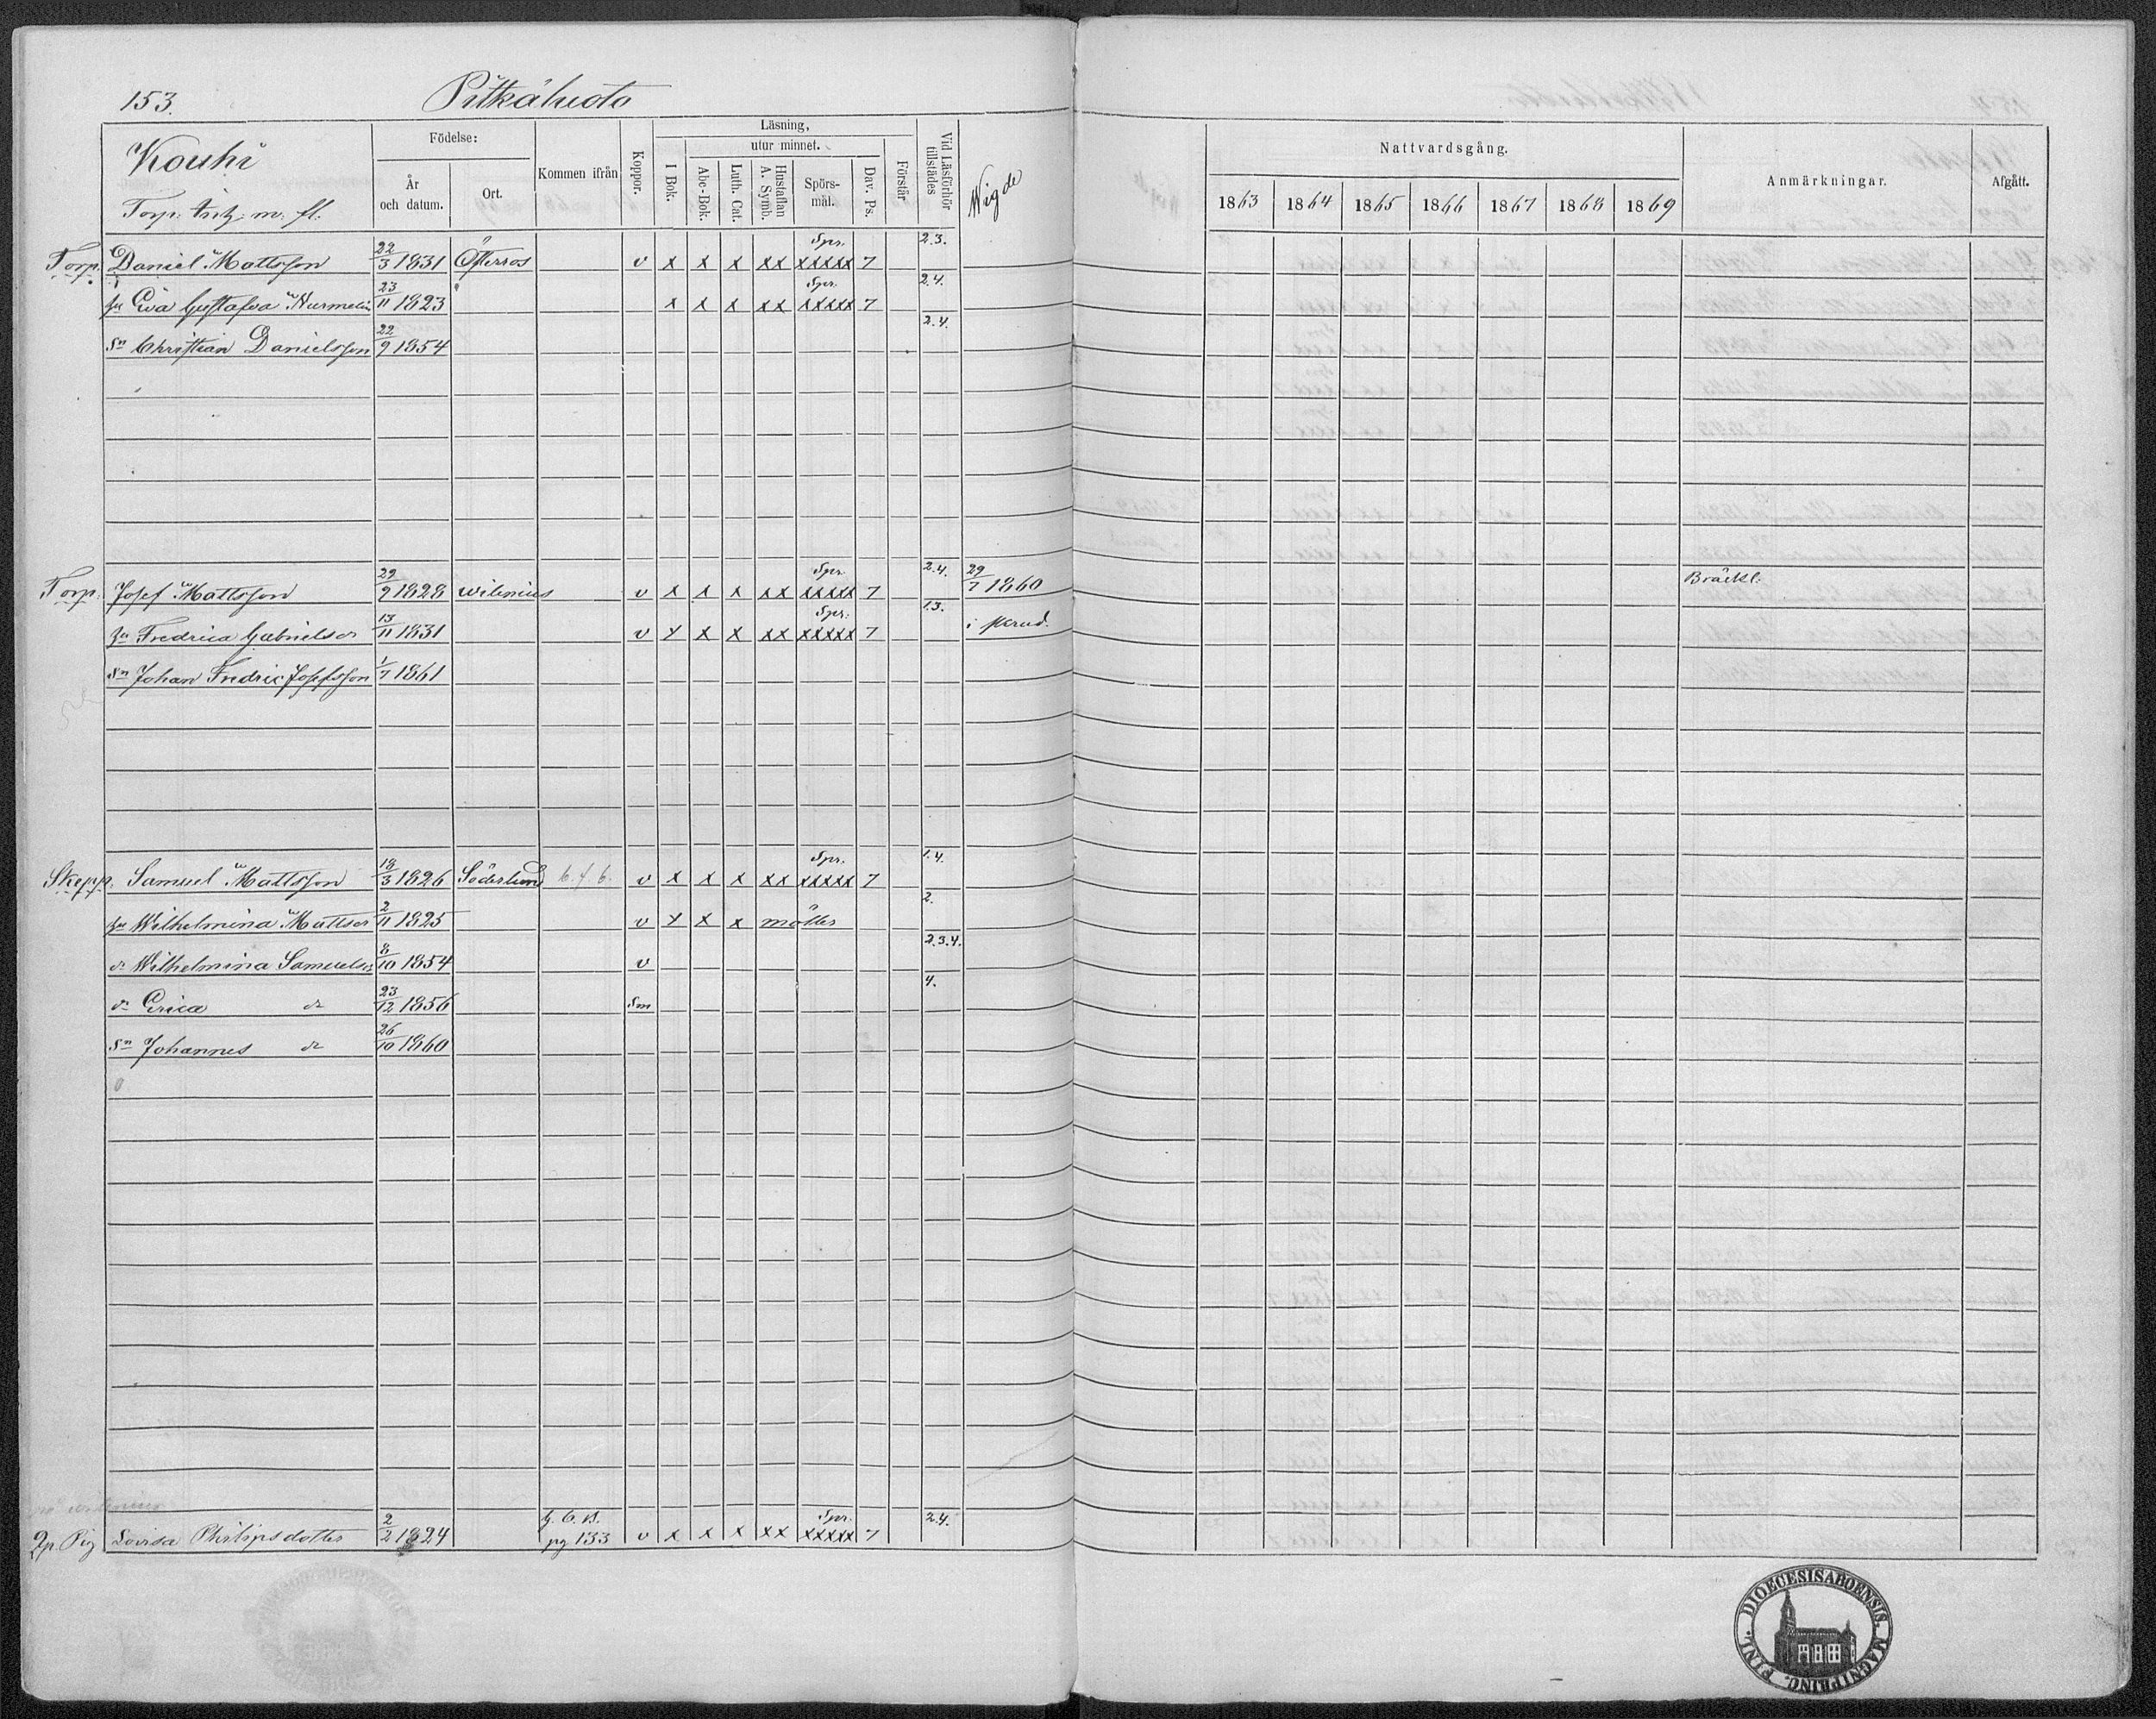 153. Pitkäluoto
Kouhi
Torp. intr. m. fl.
Födelse:
År och datum.
Ort.
Kommen ifrån
Koppor.
Läsning,
utur minnet.
I Bok.
Abc-Bok.
Luth. Cat.
Hustaflan A. Symb.
Spörs-mål.
Dav. Ps.
Förstår
Vid Läsförhör tillstädes
Wigde
Nattvardsgång.
1863 1864 1865 1866 1867 1868 1869
Anmärkningar.
Afgått.
Torp. Daniel Mattsson 22/3 1831 Österros v x x x xx Spr. xxxxx 7 2.3.
hu Eva Gustafva Nurmelin 23/11 1823 x x x xx Spr. xxxxx 7 2.4.
sn Christian Danielsson 22/9 1854 2.4.
Torp. Josef Mattsson 29/9 1828 Wilenius v x x x xx Spr. xxxxx 7 2.4. 29/7 1860 Bräckl.
hu Fredrica Gabrielsdr 13/11 1831 v x x x xx Spr. xxxxx 7 1.3.
sn Johan Fredric Josefsson 1/7 1861
Skepp. Samuel Mattsson 18/3 1826 Söderlund b. f. 6. v x x x xx Spr. xxxxx 7 1.4.
hu Wilhelmina Mattsdr 2/11 1825 v x x x 2.
dr Wilhelmina Samuelsdr 8/10 1854 v 2.3.4.
dr Erica dr 23/12 1856 Sm 4.
sn Johannes dr 26/10 1860
Pig Lovisa Philipsdotter 2/2 1824 pg 133 v x x x xx Spr. xxxxx 7 2.4.
DIOECESIS ABOENSIS. MAGNI PRINC. FINL.